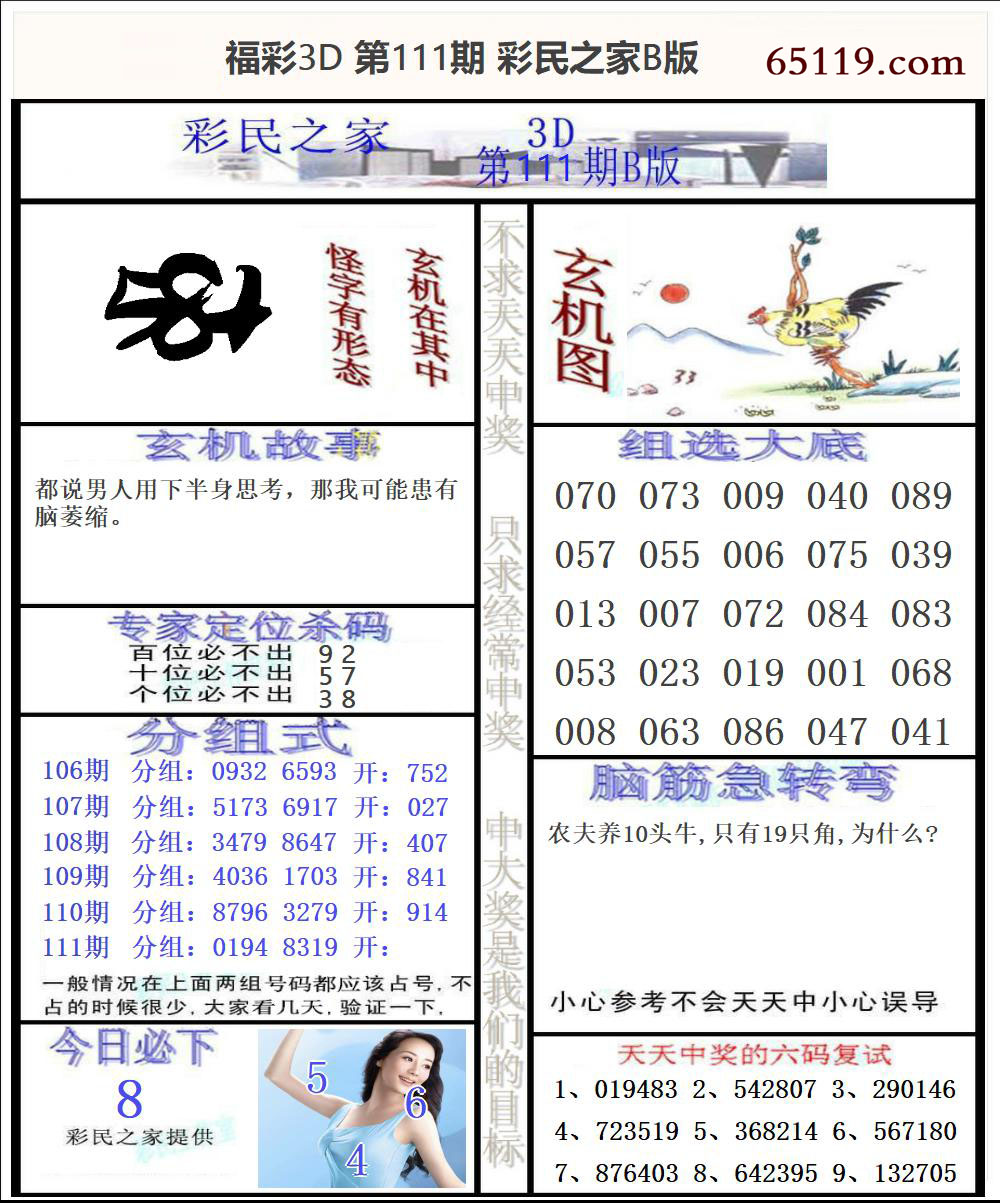 福彩3D 第111期 彩民之家B版
65119.com
彩民之家
3D
第111期B版
怪字有形态
玄机在其中
不求天天中奖
只求经常中奖
中大奖是我们的目标
玄机图
33
玄机故事
都说男人用下半身思考，那我可能患有
脑萎缩。
组选大底
070 073 009 040 089
057 055 006 075 039
013 007 072 084 083
053 023 019 001 068
008 063 086 047 041
专家定位杀码
百位必不出 9 2
十位必不出 5 7
个位必不出 3 8
分组式
106期 分组：0932 6593 开：752
107期 分组：5173 6917 开：027
108期 分组：3479 8647 开：407
109期 分组：4036 1703 开：841
110期 分组：8796 3279 开：914
111期 分组：0194 8319 开：
一般情况在上面两组号码都应该占号,不
占的时候很少,大家看几天,验证一下,
脑筋急转弯
农夫养10头牛,只有19只角,为什么?
小心参考不会天天中小心误导
今日必下
8
彩民之家提供
5
6
4
天天中奖的六码复试
1、019483 2、542807 3、290146
4、723519 5、368214 6、567180
7、876403 8、642395 9、132705